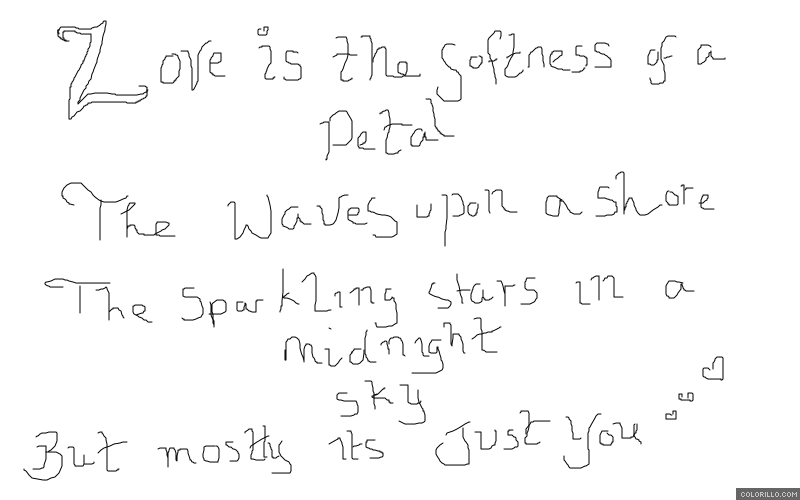 Love is the softness of a
Petal
The Waves upon a shore
The Sparkling stars in a
midnight
sky
But mostly its Just You
COLORILLO.COM